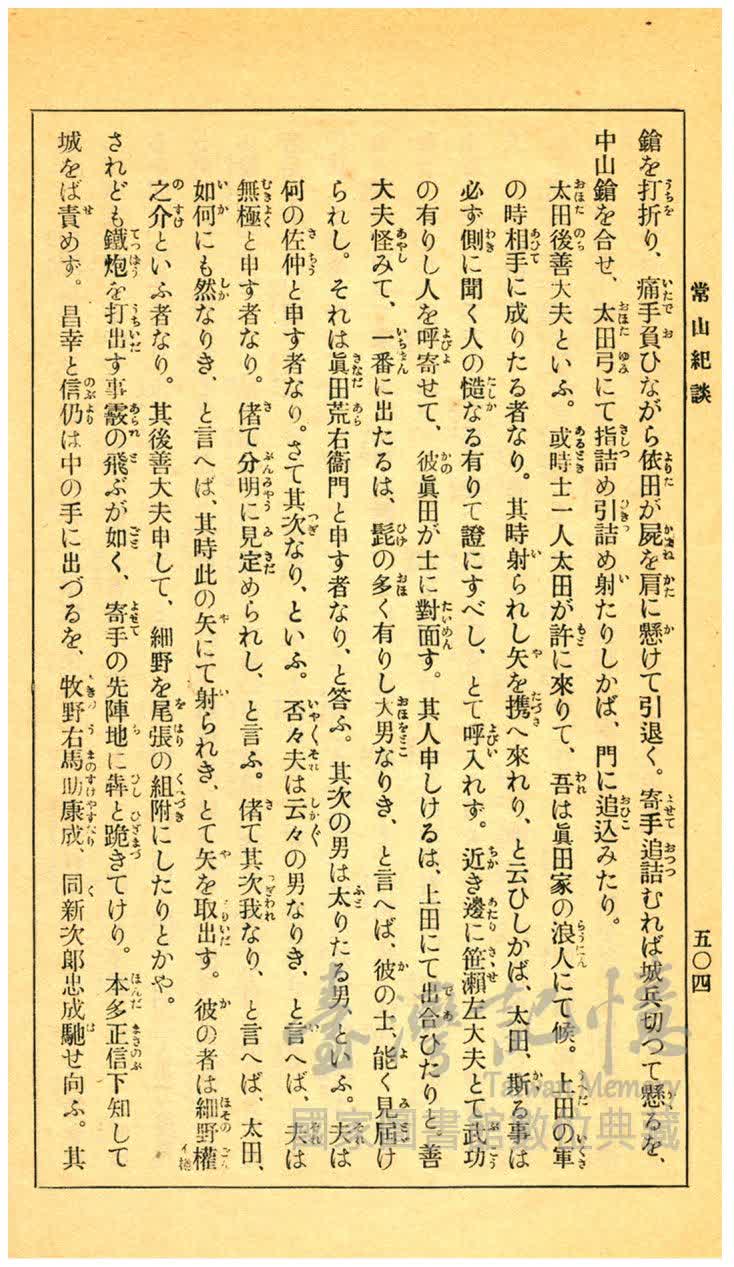 常山紀談
五〇四
鎗を打折り、痛手負ひながら依田が屍を肩に懸けて引退く。寄手追詰むれば城兵切つて懸るを、
中山鎗を合せ、太田弓にて指詰め引詰め射たりしかば、門に追込みたり。
太田後善大夫といふ。或時士一人太田が許に來りて、吾は眞田家の浪人にて候。上田の軍
の時相手に成りたる者なり。其時射られし矢を携へ來れり、と云ひしかば、太田、斯る事は
必ず側に聞く人の慥なる有りて證にすべし、とて呼入れず。近き邊に笹瀬左大夫とて武功
の有りし人を呼寄せて、彼眞田が士に對面す。其人申しけるは、上田にて出合ひたりと。善
大夫怪みて、一番に出たるは、髭の多く有りし大男なりき、と言へば、彼の士、能く見屆け
られし。それは眞田荒右衞門と申す者なり、と答ふ。其次の男は太りたる男、といふ。夫は
何の佐仲と申す者なり。さて其次なり、といふ。否々夫は云々の男なりき、と言へば、夫は
無極と申す者なり。偖て分明に見定められし、と言ふ。偖て其次我なり、と言へば、太田、
如何にも然なりき、と言へば、其時此の矢にて射られき、とて矢を取出す。彼の者は細野權
之介といふ者なり。其後善大夫申して、細野を尾張の組附にしたりとかや。
されども鐵炮を打出す事霰の飛ぶが如く、寄手の先陣地に犇と跪きてけり。本多正信下知して
城をば責めず。昌幸と信仍は中の手に出づるを、牧野右馬助康成、同新次郎忠成馳せ向ふ。其
臺灣記憶
Taiwan Memory
國家圖書館數位典藏